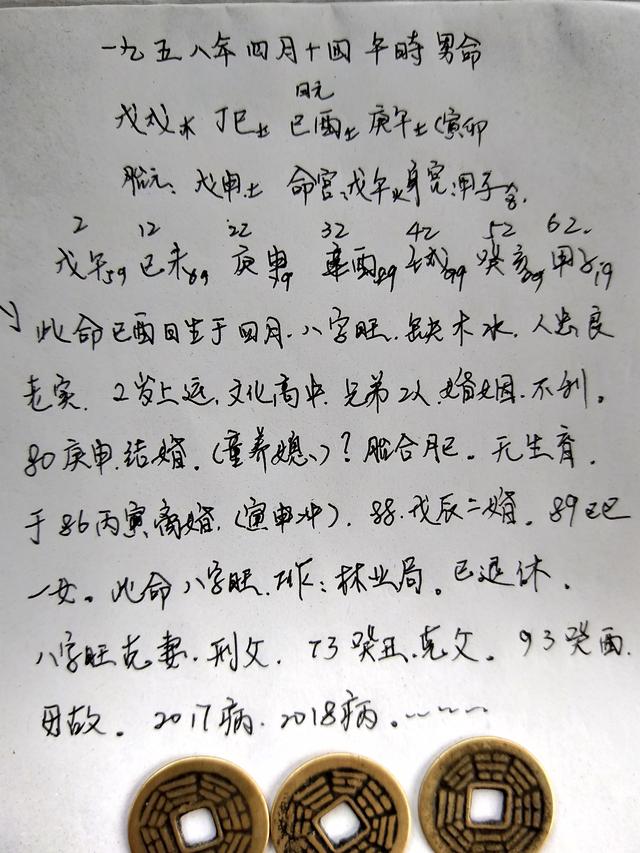 一九五八年四月十四午時男命
日元
戊戌木 丁巳土 己酉土 庚午土 (寅卯
胎元:戊申土 命宫:戊午火 身宫:甲子金.
2 12 22 32 42 52 62.
戊午59 己未69 庚申79 辛酉89 壬戌99 癸亥09 甲子19
此命己酉日生于四月.八字旺.缺木水.人忠良
老实.2岁上运.文化高中.兄弟2人.婚姻.不利。
80庚申.结婚.(童养媳、)?胎合月巳。无生育.
于86丙寅离婚.(寅申冲).88.戊辰二婚.89己巳
一女。此命八字旺.工作:林业局。已退休.
八字旺克妻.刑父.73癸丑.克父。93癸酉.
母故。2017病.2018病。